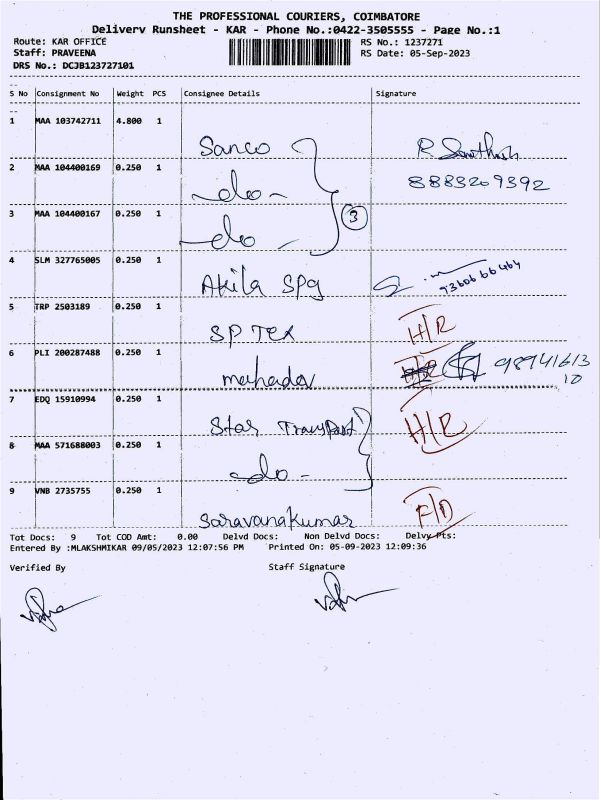 THE PROFESSIONAL COURIERS, COIMBATORE
Delivery Runsheet - KAR - Phone No.:0422-3505555 - Page No.:1
Route: KAR OFFICE RS No.: 1237271
Staff: PRAVEENA RS Date: 05-Sep-2023
DRS No.: DCJB123727101
S No Consignment No Weight PCS Consignee Details Signature
1 MAA 103742711 4.800 1
Sanco
2 MAA 104400169 0.250 1
-do- 8883209392
3 MAA 104400167 0.250 1 3
-do-
4 SLM 327765005 0.250 1
Akila SPg 9360666464
5 TRP 2503189 0.250 1
SP TEX H/R
6 PLI 200287488 0.250 1
mahadev 98941613
10
7 EDQ 15910994 0.250 1
Star Transport H/R
8 MAA 571688003 0.250 1
-do-
9 VNB 2735755 0.250 1
Saravanakumar F/D
Tot Docs: 9 Tot COD Amt: 0.00 Delvd Docs: Non Delvd Docs: Delvy Pts:
Entered By :MLAKSHMIKAR 09/05/2023 12:07:56 PM Printed On: 05-09-2023 12:09:36
Verified By Staff Signature